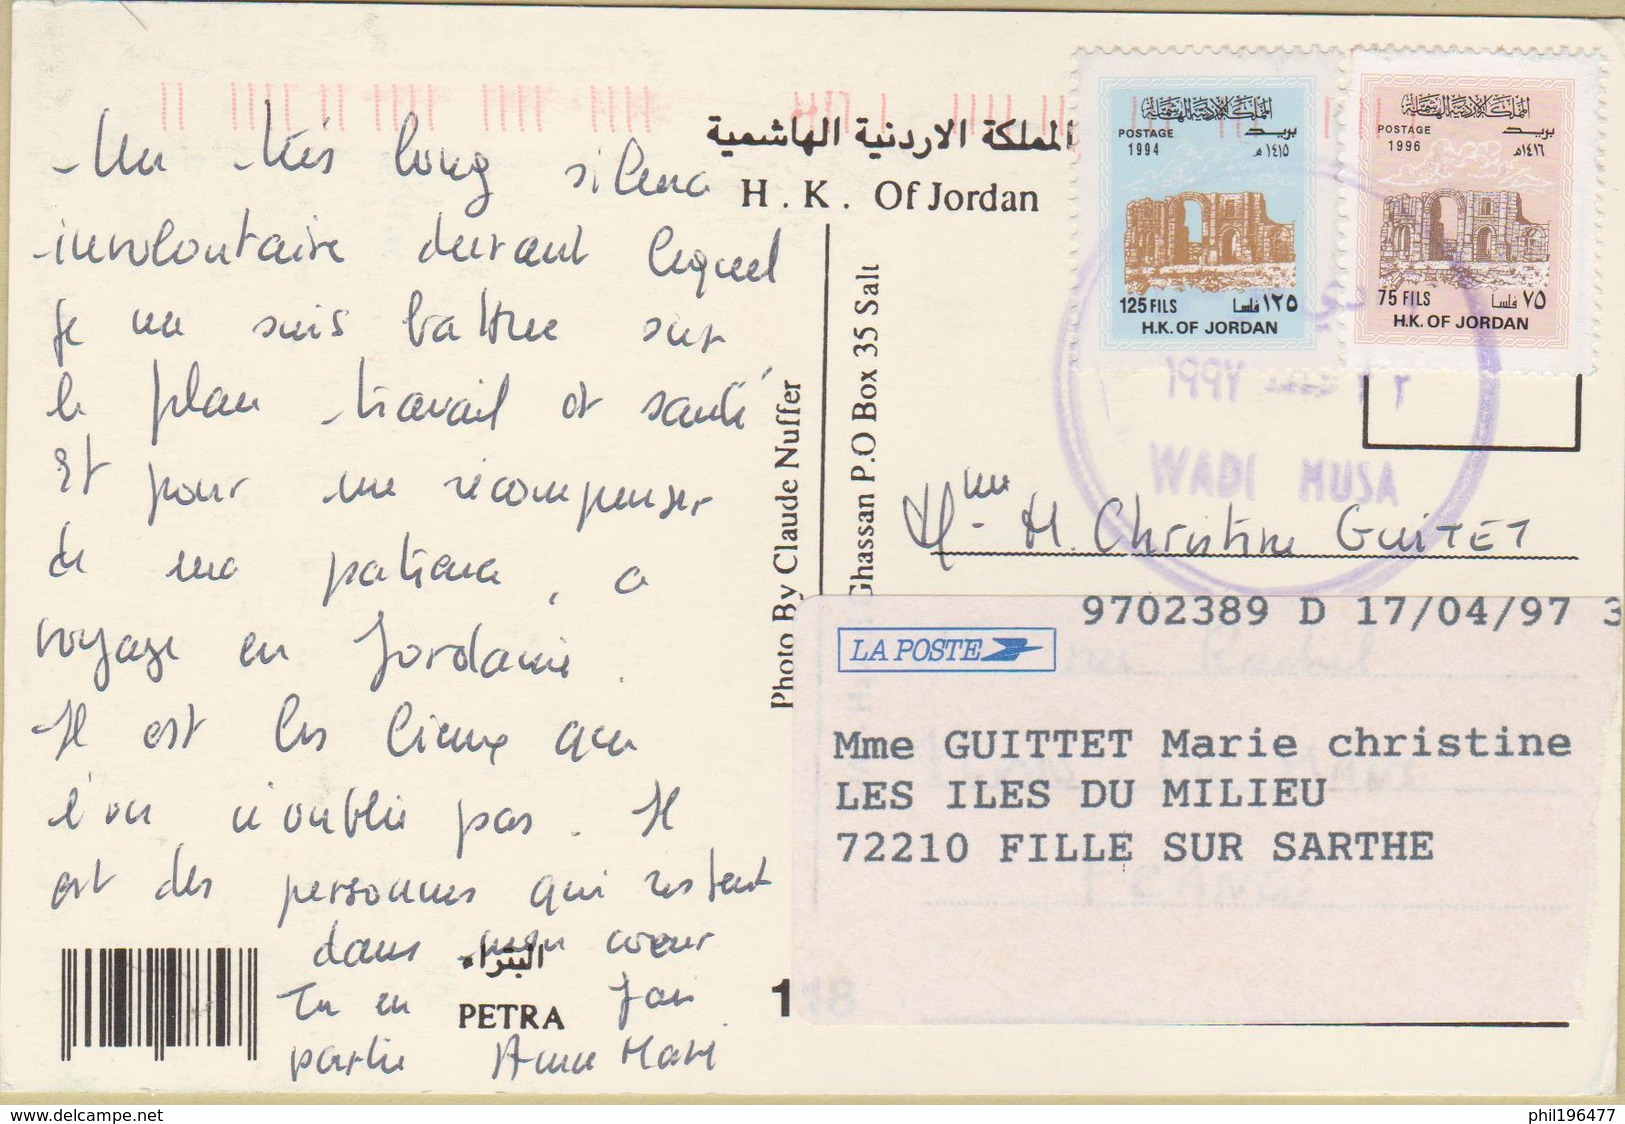 Un très long silence
involontaire durant lequel
je me suis battue sur
le plan travail et santé
Et pour me récompenser
de ma patience, a
voyage en Jordanie.
Il est les lieux que
l'on n'oublie pas. Il
est des personnes qui restent
dans mon coeur
Tu en fais
partie Anne Marie
البتراء
PETRA
118
المملكة الاردنية الهاشمية
H . K . Of Jordan
Photo By Claude Nuffer
Ghassan P.O Box 35 Salt
المملكة الأردنية الهاشمية
POSTAGE بريد
1994 ١٤١٥ هـ
125 FILS ١٢٥ فلسا
H.K. OF JORDAN
المملكة الأردنية الهاشمية
POSTAGE بريد
1996 ١٤١٦ هـ
75 FILS ٧٥ فلسا
H.K. OF JORDAN
١٩٩٧
WADI MUSA
Mme M. Christine GUITTET
9702389 D 17/04/97 3
LA POSTE
Mme GUITTET Marie christine
LES ILES DU MILIEU
72210 FILLE SUR SARTHE
FRANCE
www.delcampe.net
phil196477